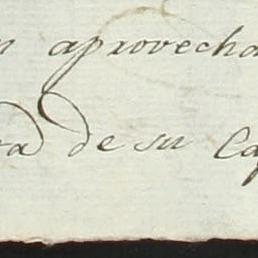 n aprovecha
ra de su Cap